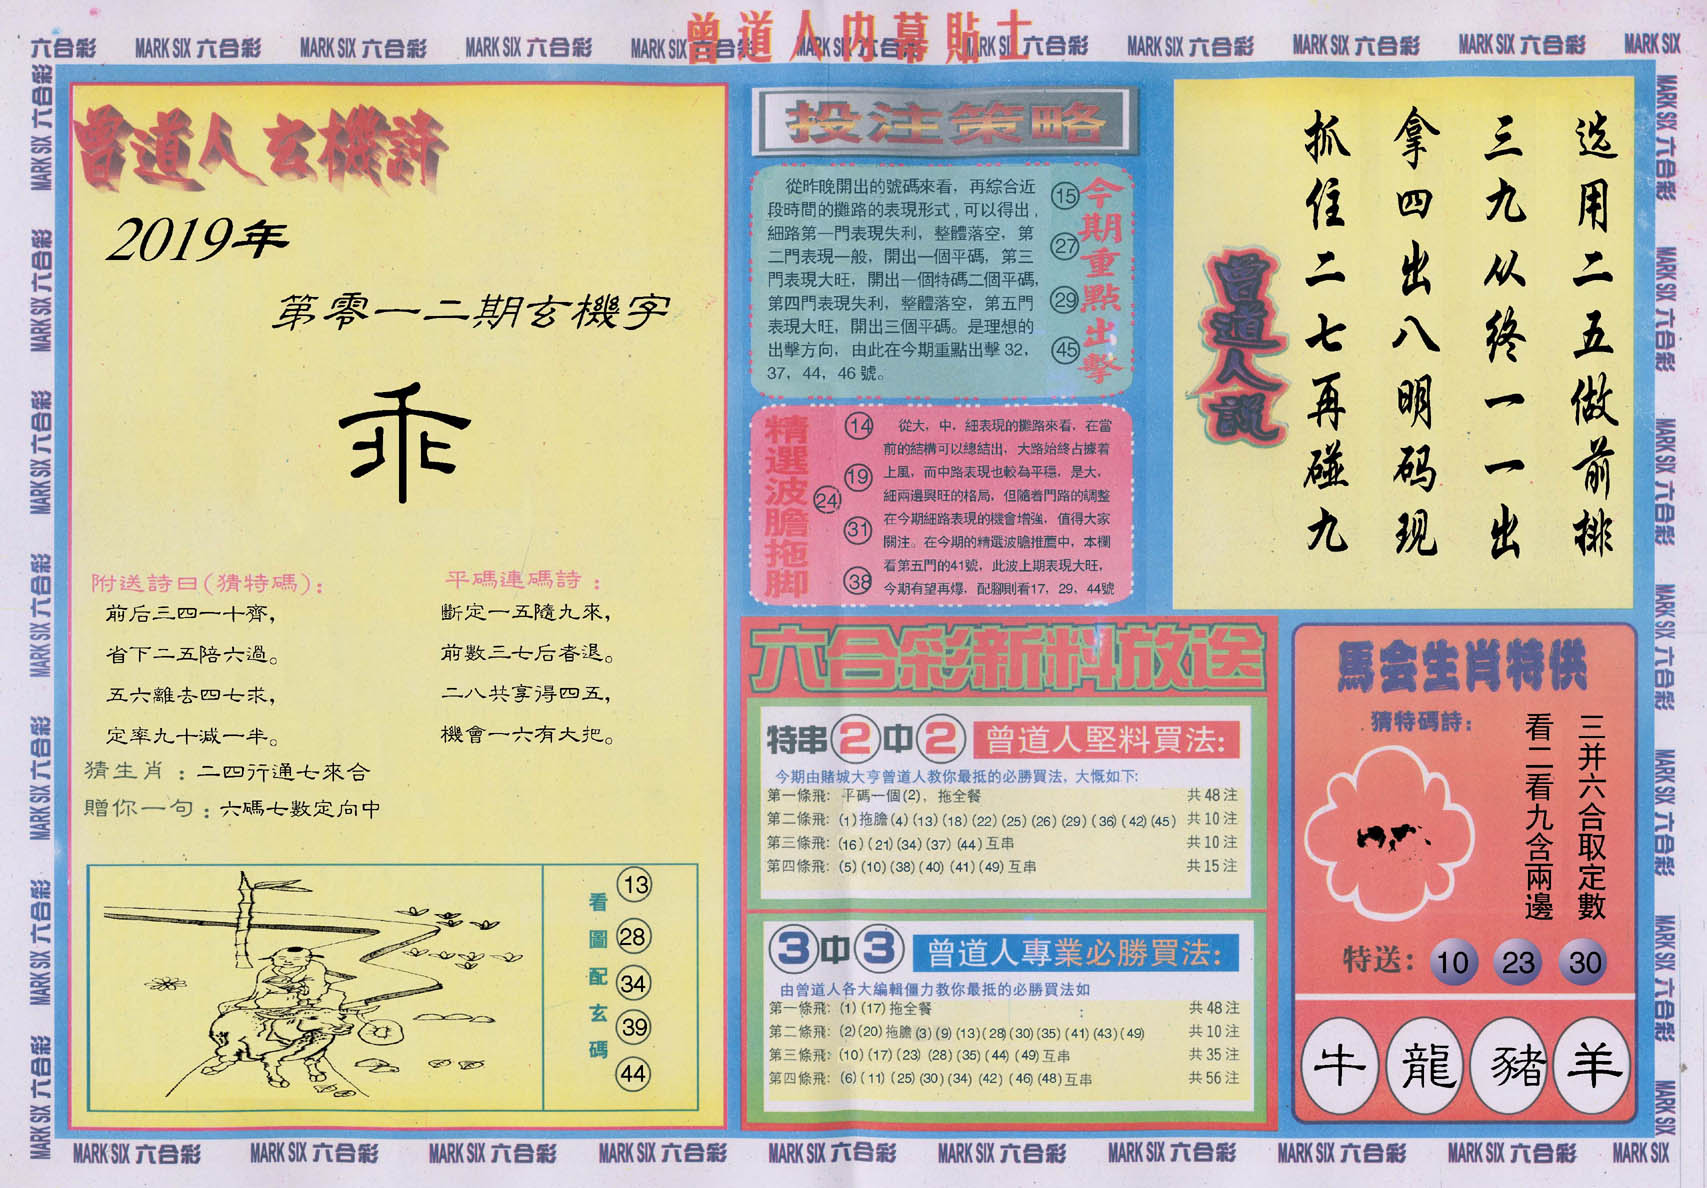 曾道人内幕貼士
六合彩 MARK SIX 六合彩 MARK SIX 六合彩 MARK SIX 六合彩 MARK SIX 六合彩 MARK SIX 六合彩 MARK SIX 六合彩 MARK SIX 六合彩 MARK SIX 六合彩 MARK SIX 六合彩 MARK SIX
曾道人玄機詩
2019年
第零一二期玄機字
乖
附送詩曰(猜特碼)：
前后三四一十齊，
省下二五陪六過。
五六離去四七求，
定率九十減一半。
平碼連碼詩：
斷定一五隨九來，
前數三七后者退。
二八共享得四五，
機會一六有大把。
猜生肖：二四行通七來合
贈你一句：六碼七數定向中
看圖配玄碼
13
28
34
39
44
投注策略
從昨晚開出的號碼來看，再綜合近
段時間的攤路的表現形式，可以得出，
細路第一門表現失利，整體落空，第
二門表現一般，開出一個平碼，第三
門表現大旺，開出一個特碼二個平碼，
第四門表現失利，整體落空，第五門
表現大旺，開出三個平碼。是理想的
出擊方向，由此在今期重點出擊 32，
37，44，46 號。
15
27
29
45
今期重點出擊
精選波膽拖脚
14
19
24
31
38
從大，中，細表現的攤路來看，在當
前的結構可以總結出，大路始終占據着
上風，而中路表現也較為平穩，是大，
細兩邊興旺的格局，但隨着門路的調整
在今期細路表現的機會增強，值得大家
關注。在今期的精選波膽推薦中，本欄
看第五門的41號，此波上期表現大旺，
今期有望再爆，配腳則看17，29，44號
选用二五做前排
三九从终一一出
拿四出八明码现
抓住二七再碰九
曾道人說
六合彩新料放送
特串2中2 曾道人堅料買法:
今期由賭城大亨曾道人教你最抵的必勝買法，大慨如下:
第一條飛: 平碼一個(2)，拖全餐 共 48 注
第二條飛: (1)拖膽(4)(13)(18)(22)(25)(26)(29)(36)(42)(45) 共 10 注
第三條飛: (16)(21)(34)(37)(44)互串 共 10 注
第四條飛: (5)(10)(38)(40)(41)(49)互串 共 15 注
3中3 曾道人專業必勝買法:
由曾道人各大編輯僵力教你最抵的必勝買法如
第一條飛: (1)(17)拖全餐 : 共 48 注
第二條飛: (2)(20)拖膽(3)(9)(13)(28)(30)(35)(41)(43)(49) 共 10 注
第三條飛: (10)(17)(23)(28)(35)(44)(49)互串 共 35 注
第四條飛: (6)(11)(25)(30)(34)(42)(46)(48)互串 共 56 注
馬会生肖特供
猜特碼詩:
三并六合取定數
看二看九含兩邊
特送: 10 23 30
牛 龍 豬 羊
MARK SIX 六合彩 MARK SIX 六合彩 MARK SIX 六合彩 MARK SIX 六合彩 MARK SIX 六合彩 MARK SIX 六合彩 MARK SIX 六合彩
MARK SIX 六合彩 MARK SIX 六合彩 MARK SIX 六合彩 MARK SIX 六合彩 MARK SIX 六合彩 MARK SIX 六合彩 MARK SIX
MARK SIX 六合彩 MARK SIX 六合彩 MARK SIX 六合彩 MARK SIX 六合彩 MARK SIX 六合彩 MARK SIX 六合彩 MARK SIX 六合彩 MARK SIX 六合彩 MARK SIX 六合彩 MARK SIX